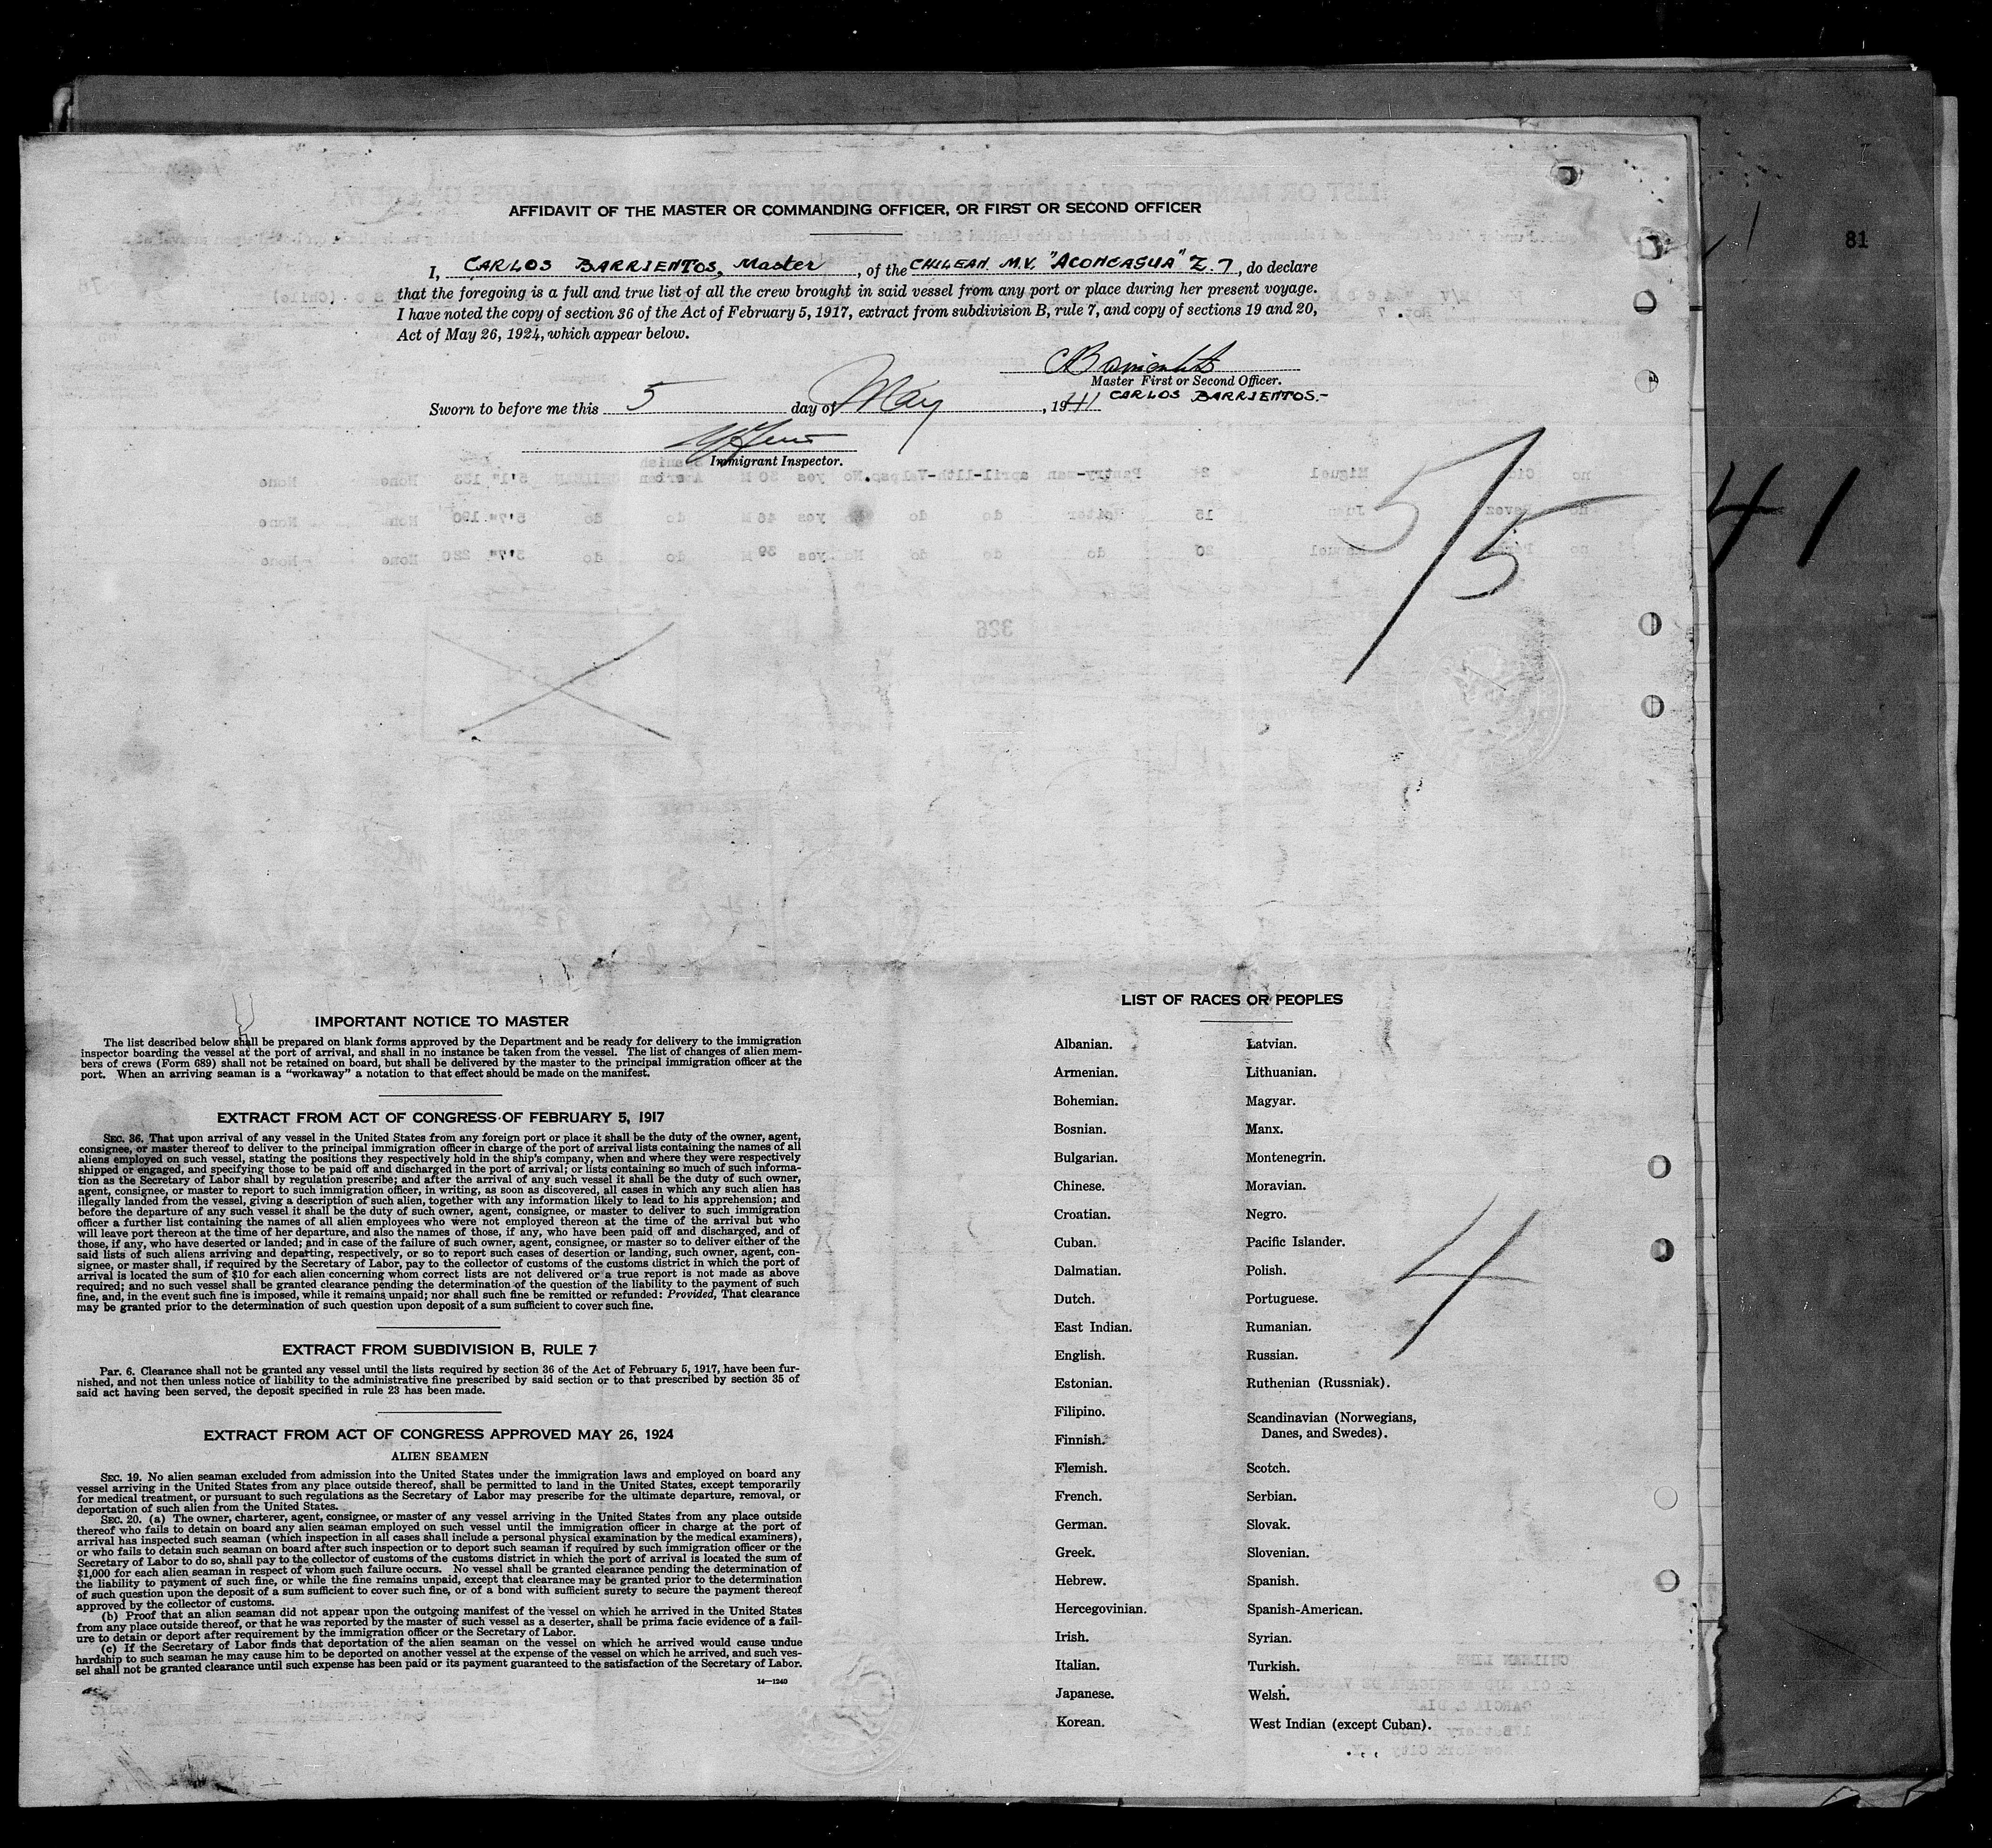 81
AFFIDAVIT OF THE MASTER OR COMMANDING OFFICER, OR FIRST OR SECOND OFFICER
I, CARLOS BARRIENTOS, Master, of the CHILEAN M.V. "ACONCAGUA" Z. 7, do declare
that the foregoing is a full and true list of all the crew brought in said vessel from any port or place during her present voyage.
I have noted the copy of section 36 of the Act of February 5, 1917, extract from subdivision B, rule 7, and copy of sections 19 and 20,
Act of May 26, 1924, which appear below.
CBarrientos
Master First or Second Officer.
CARLOS BARRIENTOS.-
Sworn to before me this 5 day of May, 1941
Immigrant Inspector.
5/5
41
IMPORTANT NOTICE TO MASTER
The list described below shall be prepared on blank forms approved by the Department and be ready for delivery to the immigration
inspector boarding the vessel at the port of arrival, and shall in no instance be taken from the vessel. The list of changes of alien mem-
bers of crews (Form 689) shall not be retained on board, but shall be delivered by the master to the principal immigration officer at the
port. When an arriving seaman is a "workaway" a notation to that effect should be made on the manifest.
EXTRACT FROM ACT OF CONGRESS OF FEBRUARY 5, 1917
SEC. 36. That upon arrival of any vessel in the United States from any foreign port or place it shall be the duty of the owner, agent,
consignee, or master thereof to deliver to the principal immigration officer in charge of the port of arrival lists containing the names of all
aliens employed on such vessel, stating the positions they respectively hold in the ship's company, when and where they were respectively
shipped or engaged, and specifying those to be paid off and discharged in the port of arrival; or lists containing so much of such informa-
tion as the Secretary of Labor shall by regulation prescribe; and after the arrival of any such vessel it shall be the duty of such owner,
agent, consignee, or master to report to such immigration officer, in writing, as soon as discovered, all cases in which any such alien has
illegally landed from the vessel, giving a description of such alien, together with any information likely to lead to his apprehension; and
before the departure of any such vessel it shall be the duty of such owner, agent, consignee, or master to deliver to such immigration
officer a further list containing the names of all alien employees who were not employed thereon at the time of the arrival but who
will leave port thereon at the time of her departure, and also the names of those, if any, who have been paid off and discharged, and of
those, if any, who have deserted or landed; and in case of the failure of such owner, agent, consignee, or master so to deliver either of the
said lists of such aliens arriving and departing, respectively, or so to report such cases of desertion or landing, such owner, agent, con-
signee, or master shall, if required by the Secretary of Labor, pay to the collector of customs of the customs district in which the port of
arrival is located the sum of $10 for each alien concerning whom correct lists are not delivered or a true report is not made as above
required; and no such vessel shall be granted clearance pending the determination of the question of the liability to the payment of such
fine, and, in the event such fine is imposed, while it remains unpaid; nor shall such fine be remitted or refunded: Provided, That clearance
may be granted prior to the determination of such question upon deposit of a sum sufficient to cover such fine.
EXTRACT FROM SUBDIVISION B, RULE 7
Par. 6. Clearance shall not be granted any vessel until the lists required by section 36 of the Act of February 5, 1917, have been fur-
nished, and not then unless notice of liability to the administrative fine prescribed by said section or to that prescribed by section 35 of
said act having been served, the deposit specified in rule 23 has been made.
EXTRACT FROM ACT OF CONGRESS APPROVED MAY 26, 1924
ALIEN SEAMEN
SEC. 19. No alien seaman excluded from admission into the United States under the immigration laws and employed on board any
vessel arriving in the United States from any place outside thereof, shall be permitted to land in the United States, except temporarily
for medical treatment, or pursuant to such regulations as the Secretary of Labor may prescribe for the ultimate departure, removal, or
deportation of such alien from the United States.
SEC. 20. (a) The owner, charterer, agent, consignee, or master of any vessel arriving in the United States from any place outside
thereof who fails to detain on board any alien seaman employed on such vessel until the immigration officer in charge at the port of
arrival has inspected such seaman (which inspection in all cases shall include a personal physical examination by the medical examiners),
or who fails to detain such seaman on board after such inspection or to deport such seaman if required by such immigration officer or the
Secretary of Labor to do so, shall pay to the collector of customs of the customs district in which the port of arrival is located the sum of
$1,000 for each alien seaman in respect of whom such failure occurs. No vessel shall be granted clearance pending the determination of
the liability to payment of such fine, or while the fine remains unpaid, except that clearance may be granted prior to the determination
of such question upon the deposit of a sum sufficient to cover such fine, or of a bond with sufficient surety to secure the payment thereof
approved by the collector of customs.
(b) Proof that an alien seaman did not appear upon the outgoing manifest of the vessel on which he arrived in the United States
from any place outside thereof, or that he was reported by the master of such vessel as a deserter, shall be prima facie evidence of a fail-
ure to detain or deport after requirement by the immigration officer or the Secretary of Labor.
(c) If the Secretary of Labor finds that deportation of the alien seaman on the vessel on which he arrived would cause undue
hardship to such seaman he may cause him to be deported on another vessel at the expense of the vessel on which he arrived, and such ves-
sel shall not be granted clearance until such expense has been paid or its payment guaranteed to the satisfaction of the Secretary of Labor.
14—1240
LIST OF RACES OR PEOPLES
Albanian.
Armenian.
Bohemian.
Bosnian.
Bulgarian.
Chinese.
Croatian.
Cuban.
Dalmatian.
Dutch.
East Indian.
English.
Estonian.
Filipino.
Finnish.
Flemish.
French.
German.
Greek.
Hebrew.
Hercegovinian.
Irish.
Italian.
Japanese.
Korean.
Latvian.
Lithuanian.
Magyar.
Manx.
Montenegrin.
Moravian.
Negro.
Pacific Islander.
Polish.
Portuguese.
Rumanian.
Russian.
Ruthenian (Russniak).
Scandinavian (Norwegians,
Danes, and Swedes).
Scotch.
Serbian.
Slovak.
Slovenian.
Spanish.
Spanish-American.
Syrian.
Turkish.
Welsh.
West Indian (except Cuban).
4